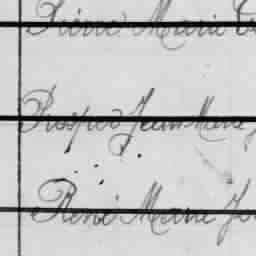 Pierre Marie
Prosper Jean Marie
René Marie Jo